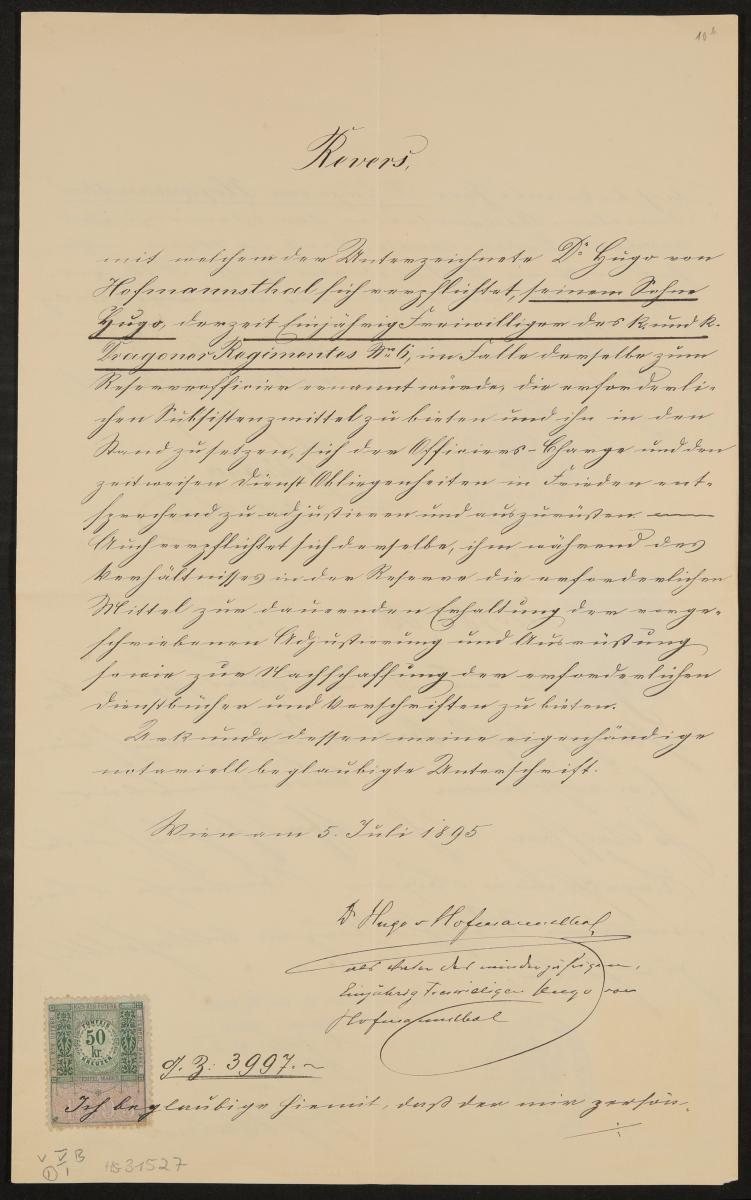 10b
Revers,
mit welchem der Unterzeichnete Dr. Hugo von
Hofmannsthal sich verpflichtet, seinem Sohne
Hugo, derzeit Einjährig Freiwilliger des k. und k.
Dragoner Regimentes No 6, im Falle derselbe zum
Reserveofficier ernannt würde, die erforderli-
chen Subsistenzmittel zu bieten und ihn in den
Stand zu setzen, sich der Officiers-Charge und den
zeitweisen Dienst Obliegenheiten in Frieden ent-
sprechend zu adjustieren und auszurüsten
Auch verpflichtet sich derselbe, ihm während des
Verhältnisses in der Reserve die erforderlichen
Mittel zur dauernden Erhaltung der vorge-
schriebenen Adjustierung und Ausrüstung
sowie zur Nachschaffung der erforderlichen
Dienstbücher und Vorschriften zu bieten.
Urkunde dessen meine eigenhändige
notariell beglaubigte Unterschrift.
Wien am 5. Juli 1895
Dr Hugo v Hofmannsthal,
als Vater des minderjährigen,
Einjährig Freiwilligen Hugo von
Hofmannsthal
50
kr.
KREUZER
STEMPEL MARKE
G. Z: 3997.
Ich beglaubige hiemit, daß der mir persön-
V V B
1 I
HS 31527